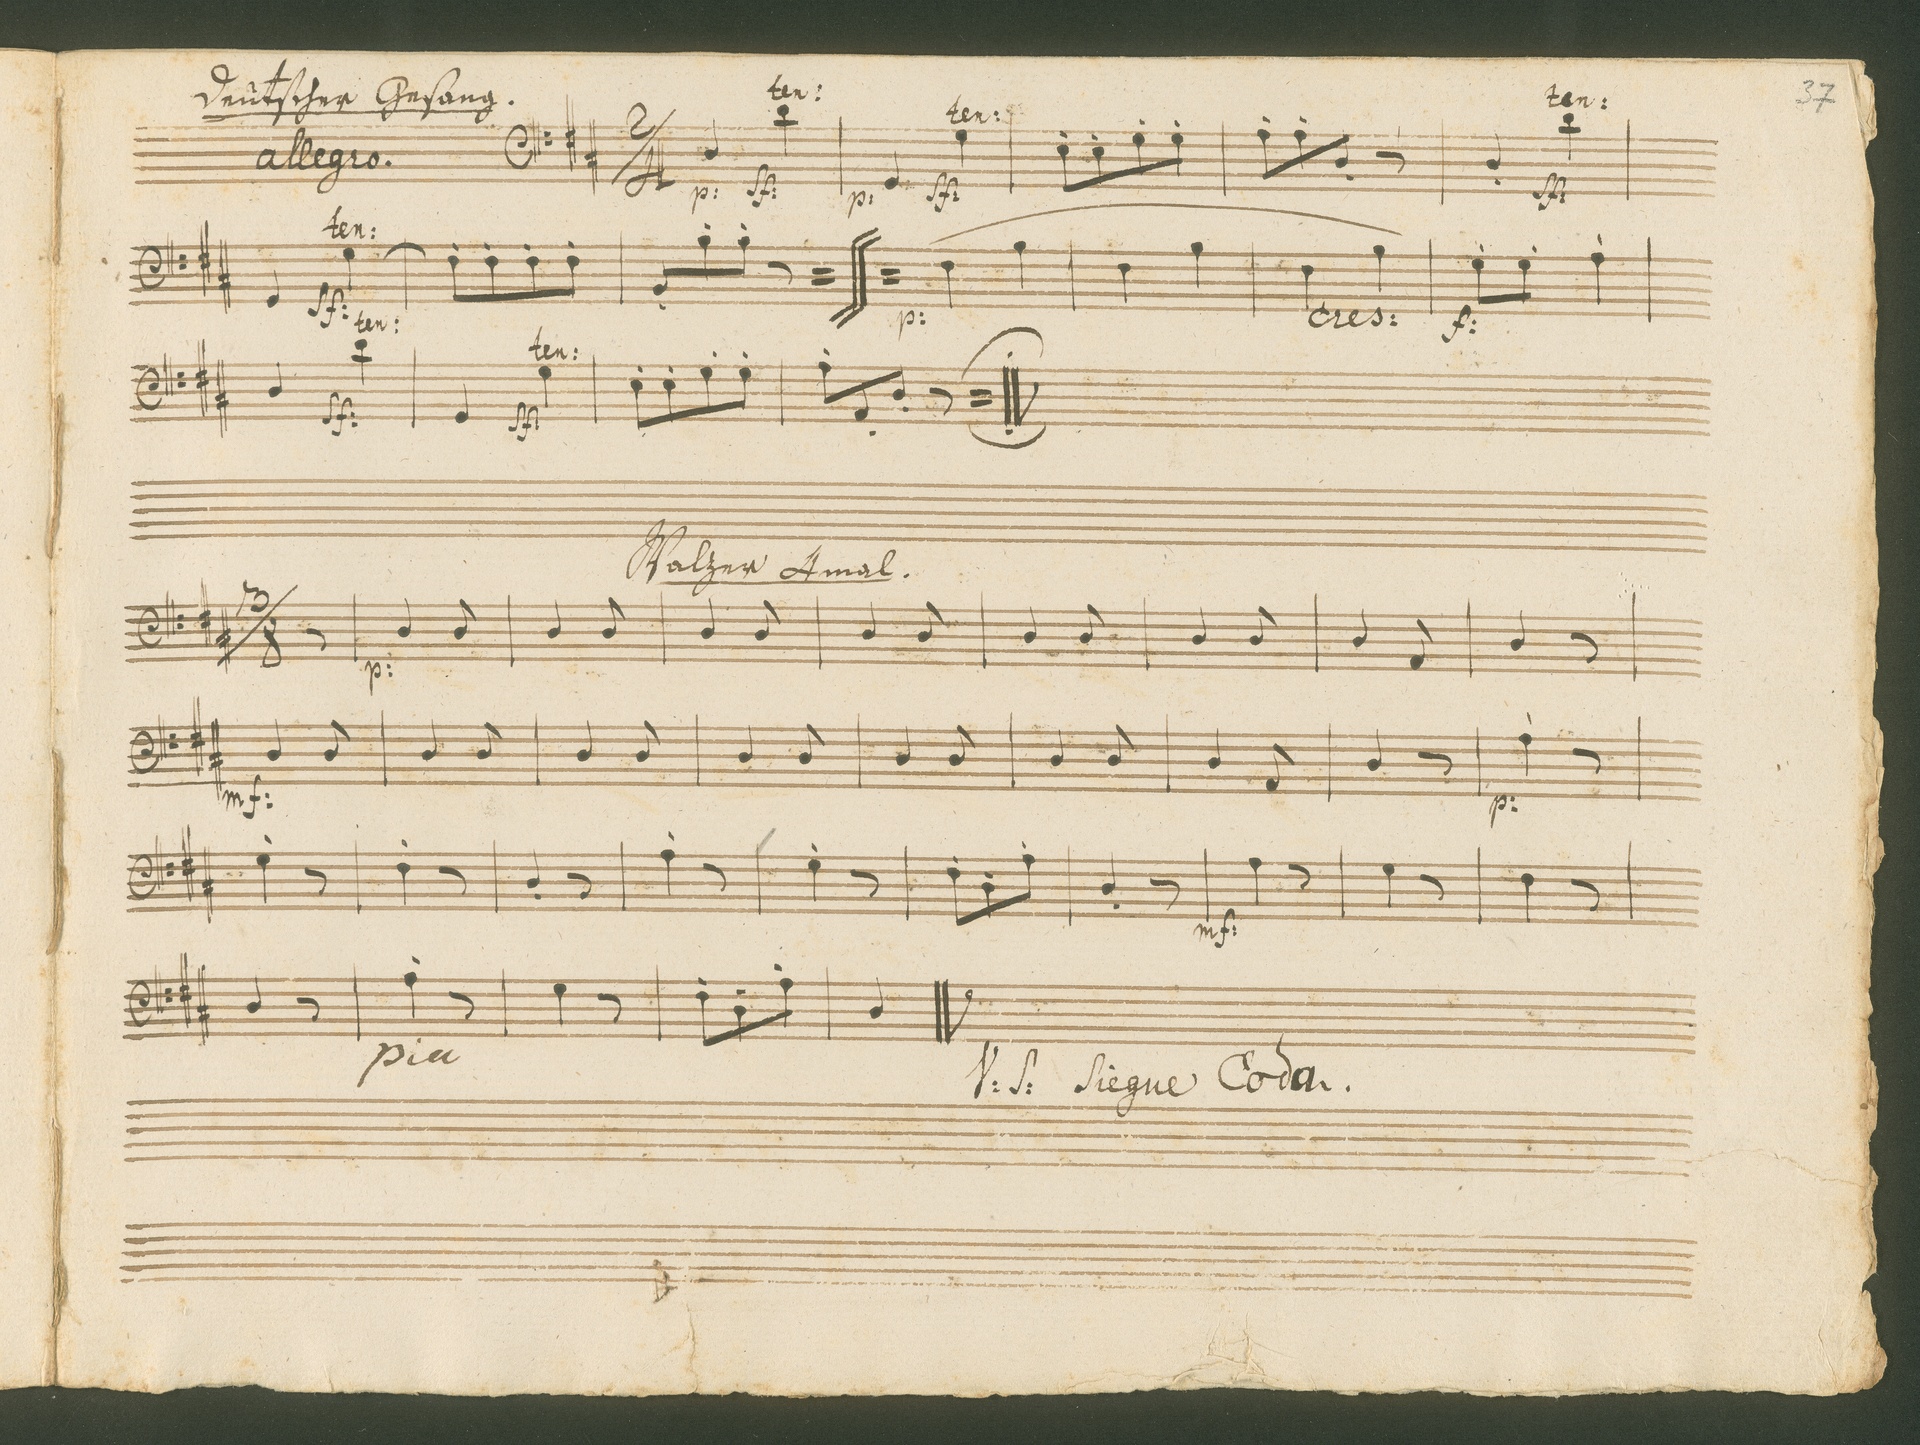 Deutscher Gesang.
37
allegro.
2/4
ten: ten: ten:
p: sf: p: sf: sf:
ten:
sf: p: cres: f:
ten: ten:
sf: sf:
Walzer 4mal.
3/8
p:
mf: p:
mf:
pia
V: S: Siegue Coda.